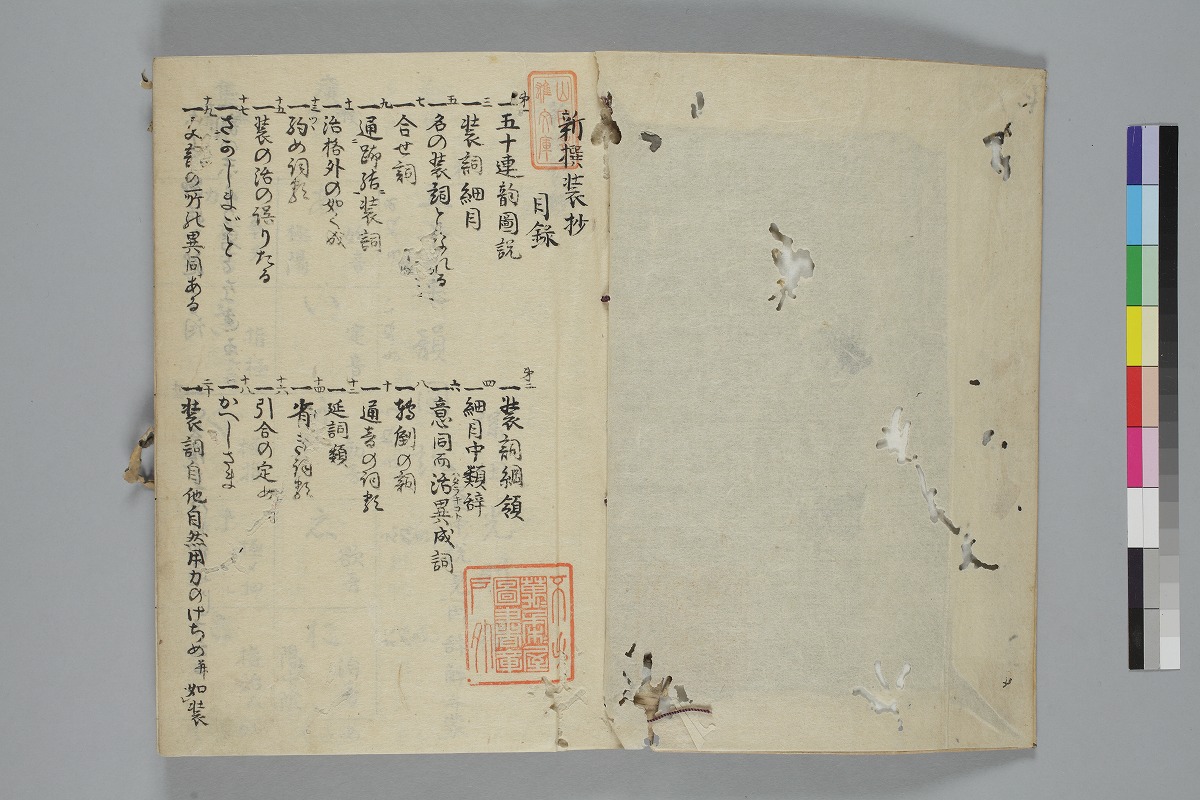 新撰装抄
目録
第一 一 五十連韻圖説
第二 一 装詞綱領
三 一 装詞細目
四 一 細目中類辞
五 一 名の装詞となれる
六 一 意同而活異成詞
七 一 合せ詞
八 一 轉倒の詞
九 一 通
十 一 通音の詞類
十一 一 活格外の如く成
十二 一 延詞類
十三 一 約め詞類
十四 一 省き詞類
十五 一 装の活の誤りたる
十六 一 引合の定め
十七 一 さかしまごと
十八 一 かへしさま
十九 一 の所
異同ある
二十 一 装詞自他自然用力のけちめ并如装